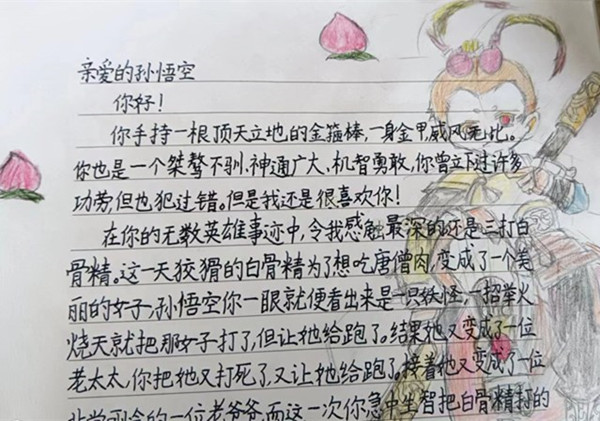 亲爱的孙悟空
你好!
你手持一根顶天立地的金箍棒,一身金甲威风无比。
你也是一个桀骜不驯、神通广大、机智勇敢,你曾立下过许多
功劳,但也犯过错。但是我还是很喜欢你!
在你的无数英雄事迹中,令我感触最深的还是三打白
骨精。这一天狡猾的白骨精为了想吃唐僧肉,变成了一个美
丽的女子,孙悟空你一眼就便看出来是一只妖怪,一招举火
烧天就把那女子打了,但让她给跑了。结果她又变成了一位
老太太,你把她又打死了,又让她给跑了。接着她又变成了一位
的一位老爷爷,而这一次你急中生智把白骨精打的